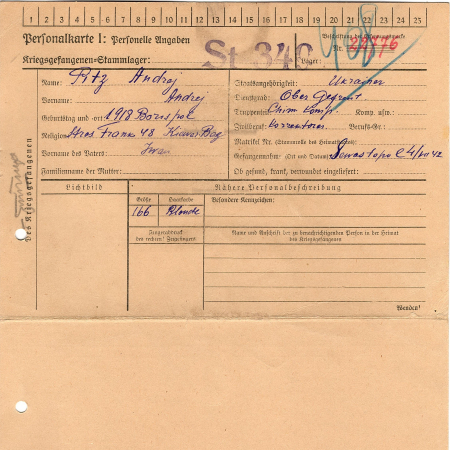 1 2 3 4 5 6 7 8 9 10 11 12 13 14 15 16 17 18 19 20 21 22 23 24 25
Personalkarte I: Personelle Angaben
Kriegsgefangenen=Stammlager: St 340
Beschriftung der Erkennungsmarke
Nr. 29876
Lager:
Name: Ritz Andrej
Vorname: Andrej
Geburtstag und -ort 1918 Borispol
Religion
Vorname des Vaters: Iwan
Familienname der Mutter:
Staatsangehörigkeit: Ukrainer
Dienstgrad: Ober
Truppenteil: Chim Komp. Komp. usw.
Zivilberuf: Berufs-Gr.:
Matrikel Nr. (Stammrolle des Heimatstaates)
Gefangennahme (Ort und Datum) Sewastopol 4/VII 42
Ob gesund, krank, verwundet eingeliefert:
Des Kriegsgefangenen
Lichtbild
Nähere Personalbeschreibung
Größe Haarfarbe Besondere Kennzeichen:
166 Blonde
Fingerabdruck
des rechten! Zeigefingers!
Name und Anschrift der zu benachrichtigenden Person in der Heimat
des Kriegsgefangenen
Wenden!